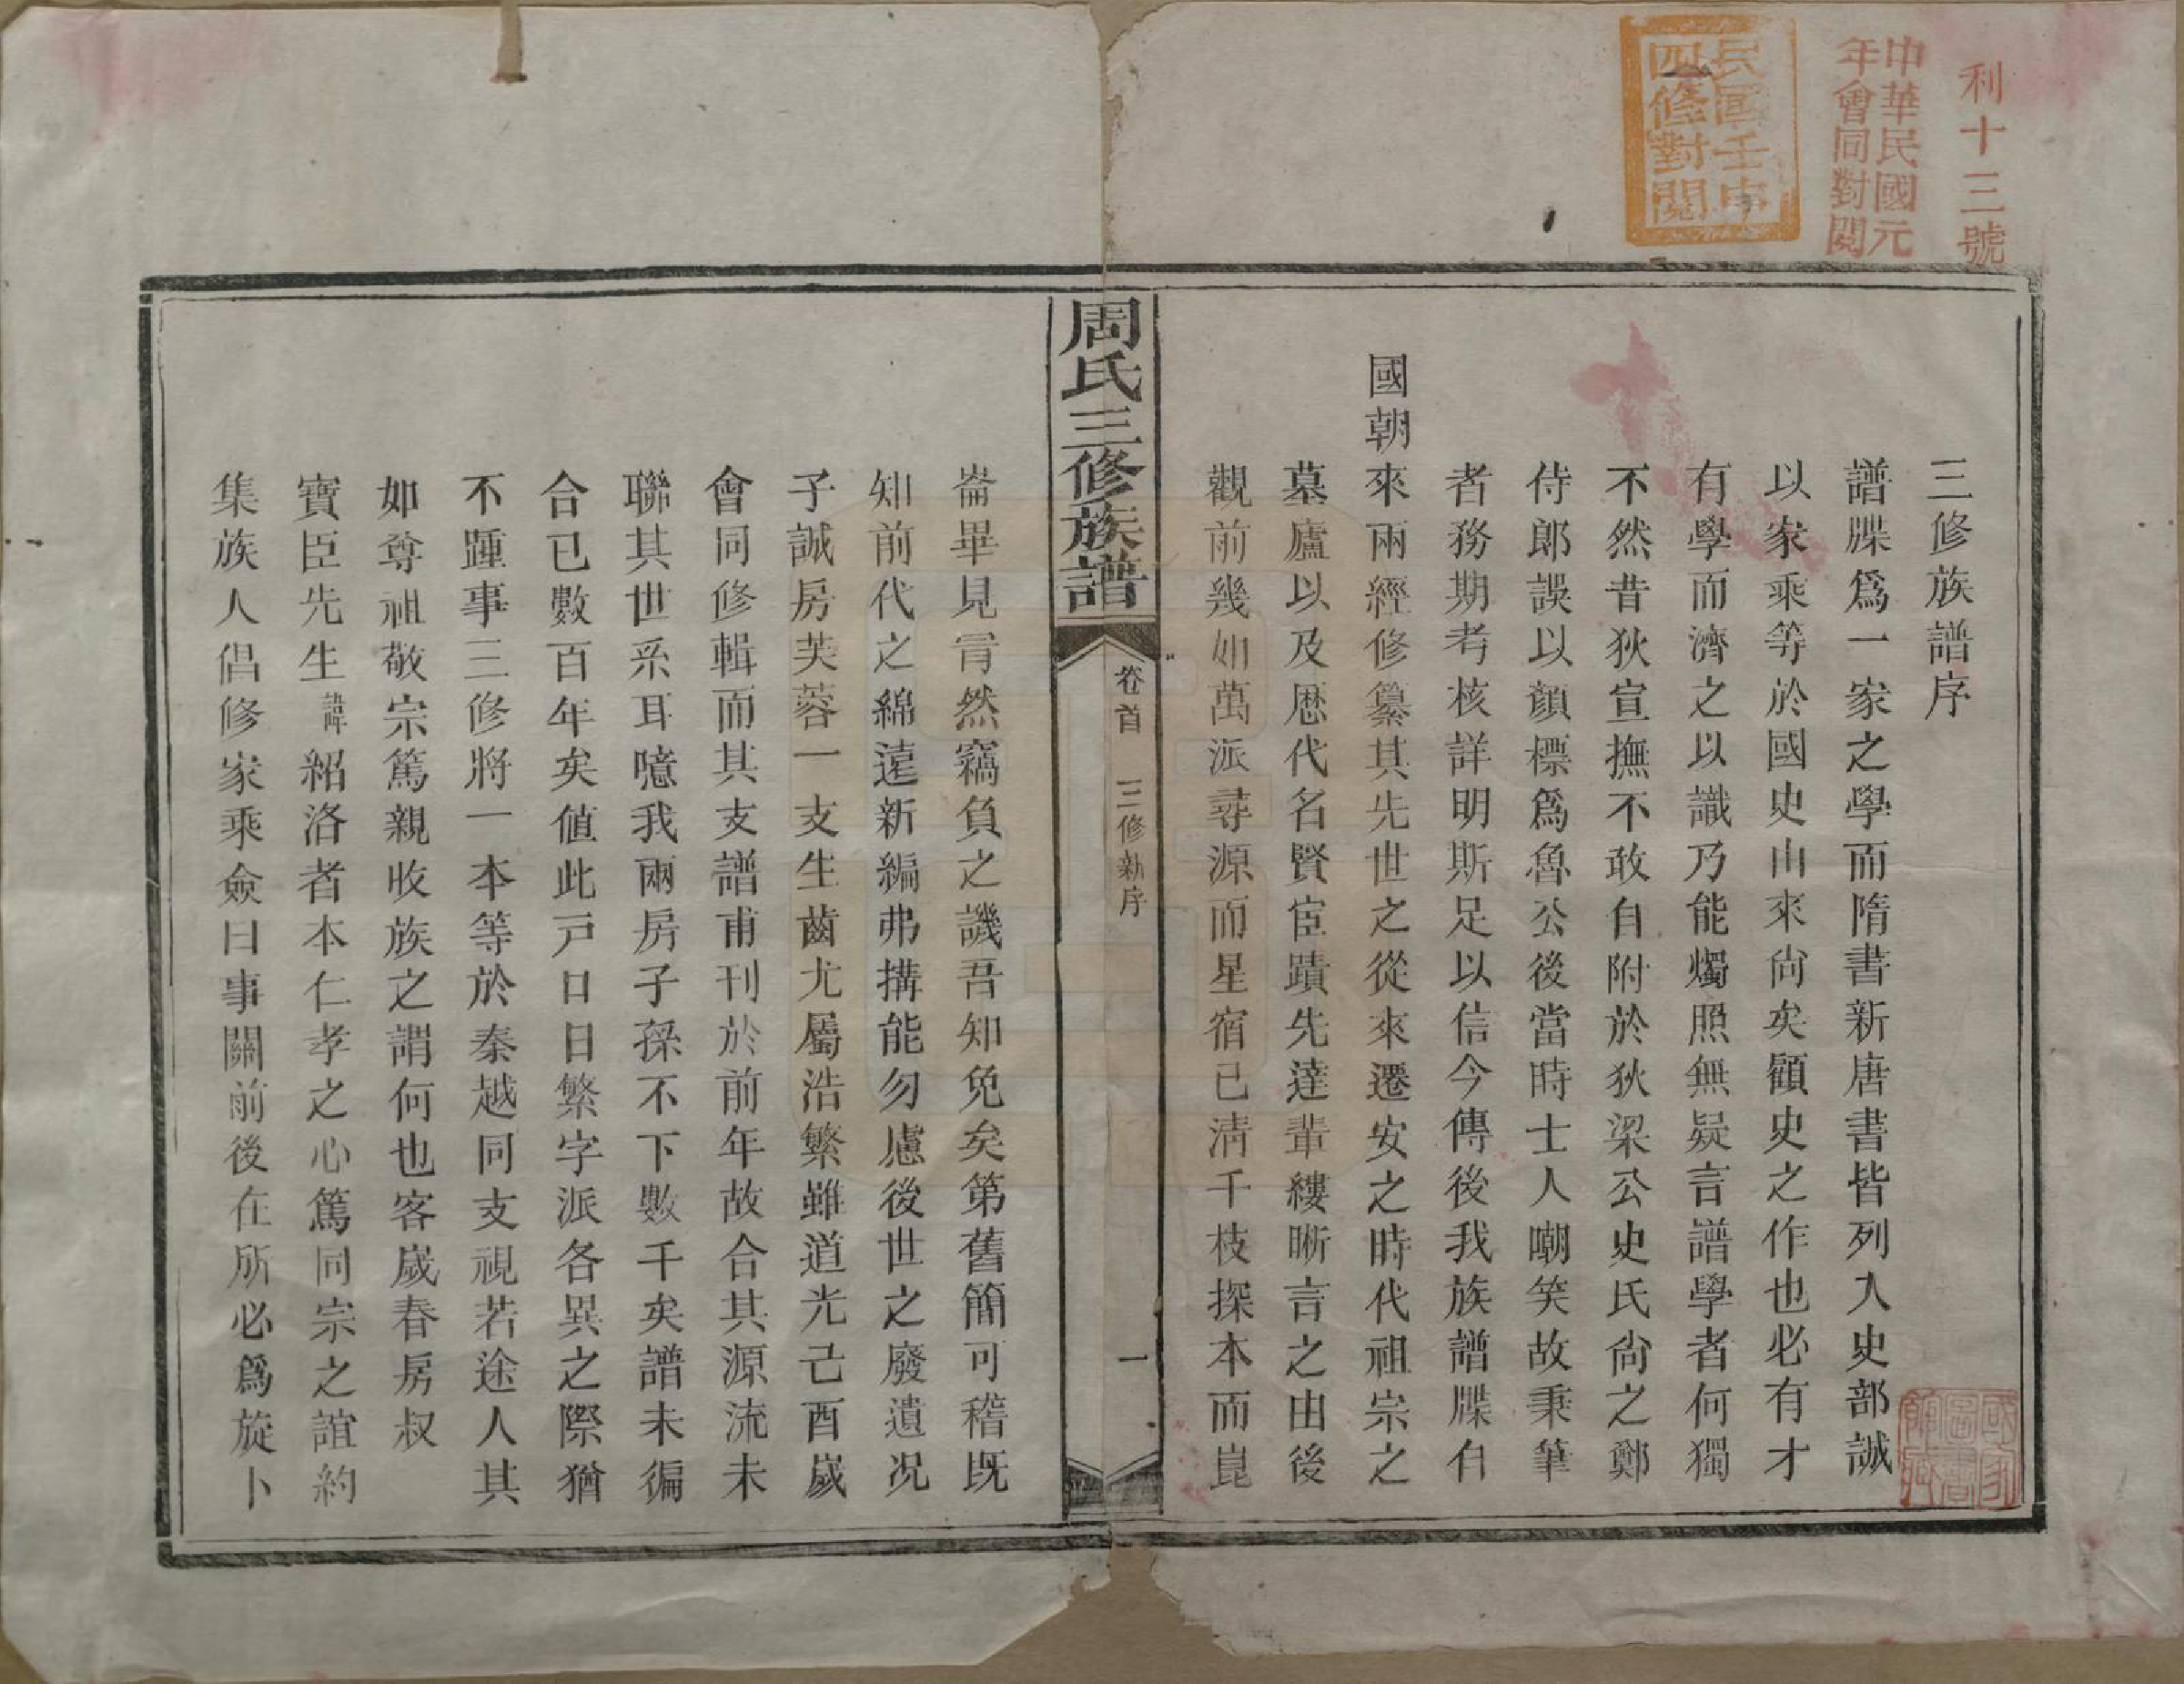 利十三號
中華民國元
年會同對閱
民國壬申
四修對閱
三修族譜序
譜牒爲一家之學而隋書新唐書皆列入史部誠
以家乘等於國史由來尙矣顧史之作也必有才
有學而濟之以識乃能燭照無疑言譜學者何獨
不然昔狄宣撫不敢自附於狄梁公史氏尙之鄭
侍郎誤以顏標爲魯公後當時士人嘲笑故秉筆
者務期考核詳明斯足以信今傳後我族譜牒自
國朝來兩經修纂其先世之從來遷安之時代祖宗之
墓廬以及歷代名賢宦蹟先達輩縷晰言之由後
觀前幾如萬派尋源而星宿已淸千枝探本而崑
周氏三修族譜
卷首
三修新序
一
崙畢見胥然竊負之譏吾知免矣第舊簡可稽既
知前代之綿遠新編弗搆能勿慮後世之廢遺况
子誠房芙蓉一支生齒尤屬浩繁雖道光己酉歲
會同修輯而其支譜甫刊於前年故合其源流未
聯其世系耳噫我兩房子孫不下數千矣譜未徧
合已數百年矣値此戸口日繁字派各異之際猶
不踵事三修將一本等於秦越同支視若途人其
如尊祖敬宗篤親收族之謂何也客歲春房叔
寶臣先生諱紹洛者本仁孝之心篤同宗之誼約
集族人倡修家乘僉曰事關前後在所必爲旋卜